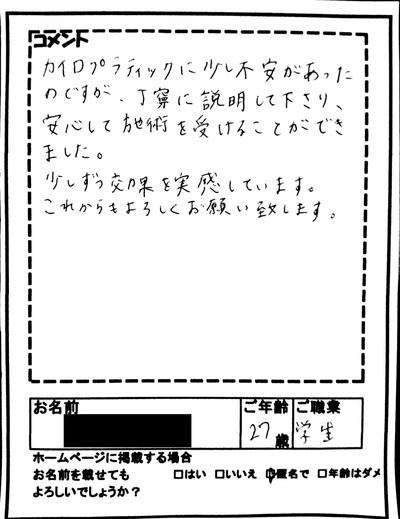 コメント
カイロプラティックに少し不安があった
のですが、丁寧に説明して下さり、
安心して施術を受けることができ
ました。
少しずつ効果を実感しています。
これからもよろしくお願い致します。
お名前 ご年齢 ご職業
27歳 学生
ホームページに掲載する場合
お名前を載せても □はい □いいえ □匿名で □年齢はダメ
よろしいでしょうか？